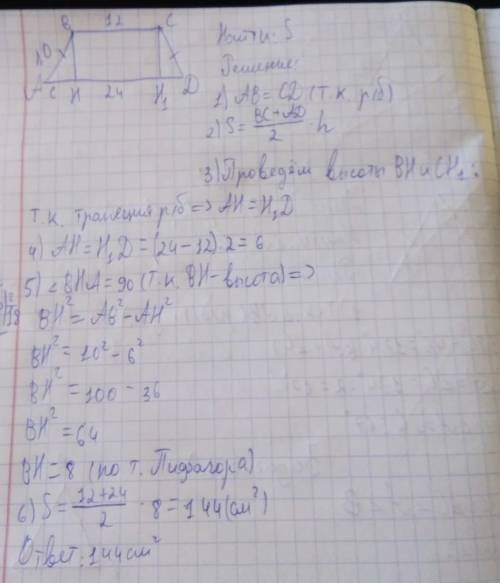 B 12 C
10
A C H 24 H₁ D
Найти: S
Решение:
1) AB = CD (т.к. р/б)
2) S = (BC + AD)/2 h
3) Проведём высоты BH и CH₁:
т.к. трапеция р/б => AH = H₁D
4) AH = H₁D = (24 - 12) : 2 = 6
5) ∠BHA = 90 (т.к. BH - высота) =>
BH² = AB² - AH²
BH² = 10² - 6²
BH² = 100 - 36
BH² = 64
BH = 8 (по т. Пифагора)
6) S = (12 + 24)/2 · 8 = 144 (см²)
Ответ: 144 см²